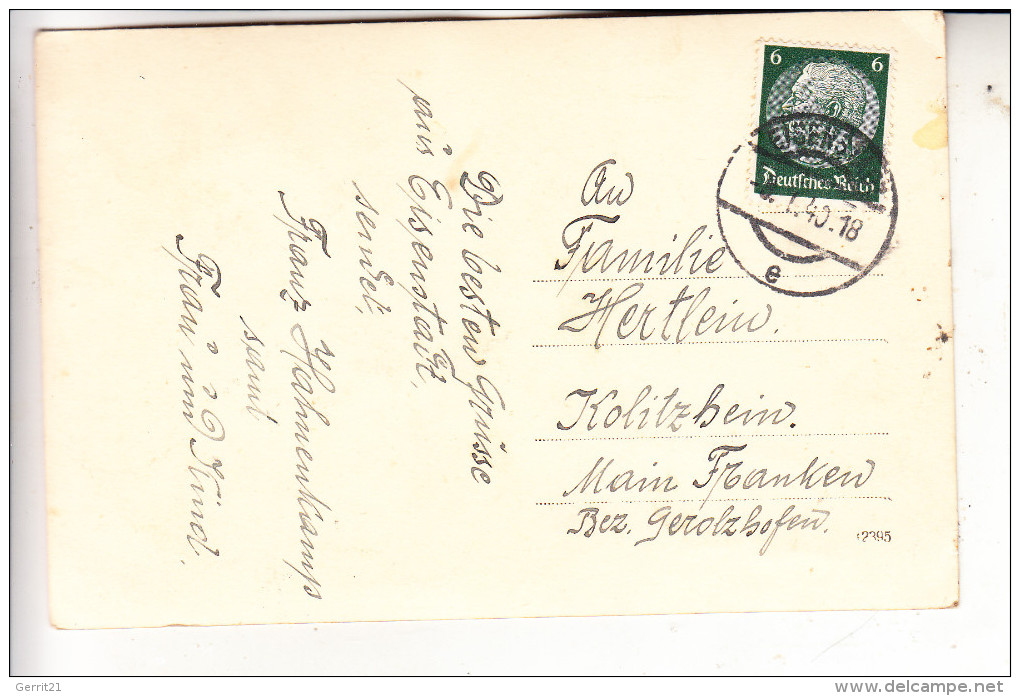 6 6
Deutsches Reich
.40.18
e
An
Familie
Hertlein.
Kolitzhein.
Main Franken
Bez. Gerolzhofen.
12395
Die besten Grüsse
aus Eisenstadt,
sendet,
Franz Hahnenkamp
samt
Frau und Kind.
Gerrit21
www.delcampe.net